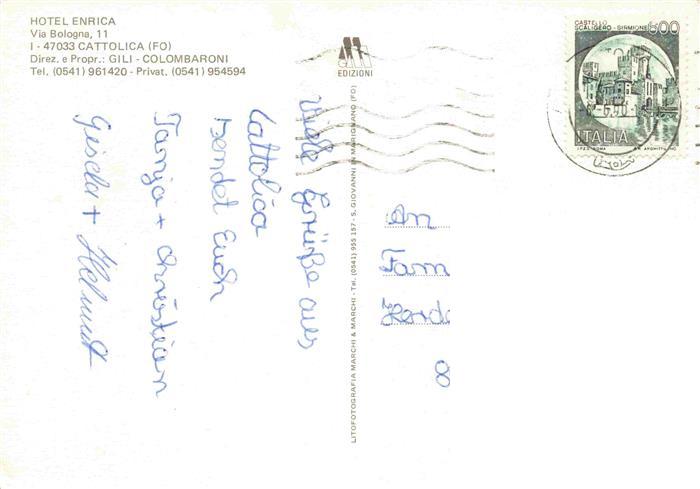 HOTEL ENRICA
Via Bologna, 11
I - 47033 CATTOLICA (FO)
Direz. e Propr.: GILI - COLOMBARONI
Tel. (0541) 961420 - Privat. (0541) 954594
EDIZIONI
CASTELLO
SCALIGERO - SIRMIONE
600
ITALIA
Viele Grüße aus
Cattolica
sendet Euch
Tanja + Christian
Gisela + Helmut
LITOFOTOGRAFIA MARCHI & MARCHI - Tel. (0541) 955 157 - S. GIOVANNI IN MARIGNANO (FO)
An
Fam
8